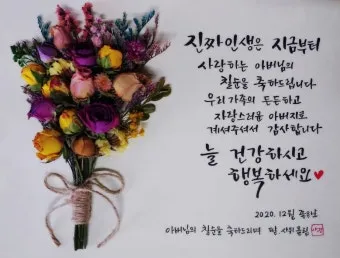 진짜 인생은 지금부터
사랑하는 아버님의
칠순을 축하드립니다
우리 가족의 든든하고
자랑스러운 아버지로
계셔주셔서 감사합니다
늘 건강하시고
행복하세요
2020. 12월
아버님의 칠순을 축하드리며